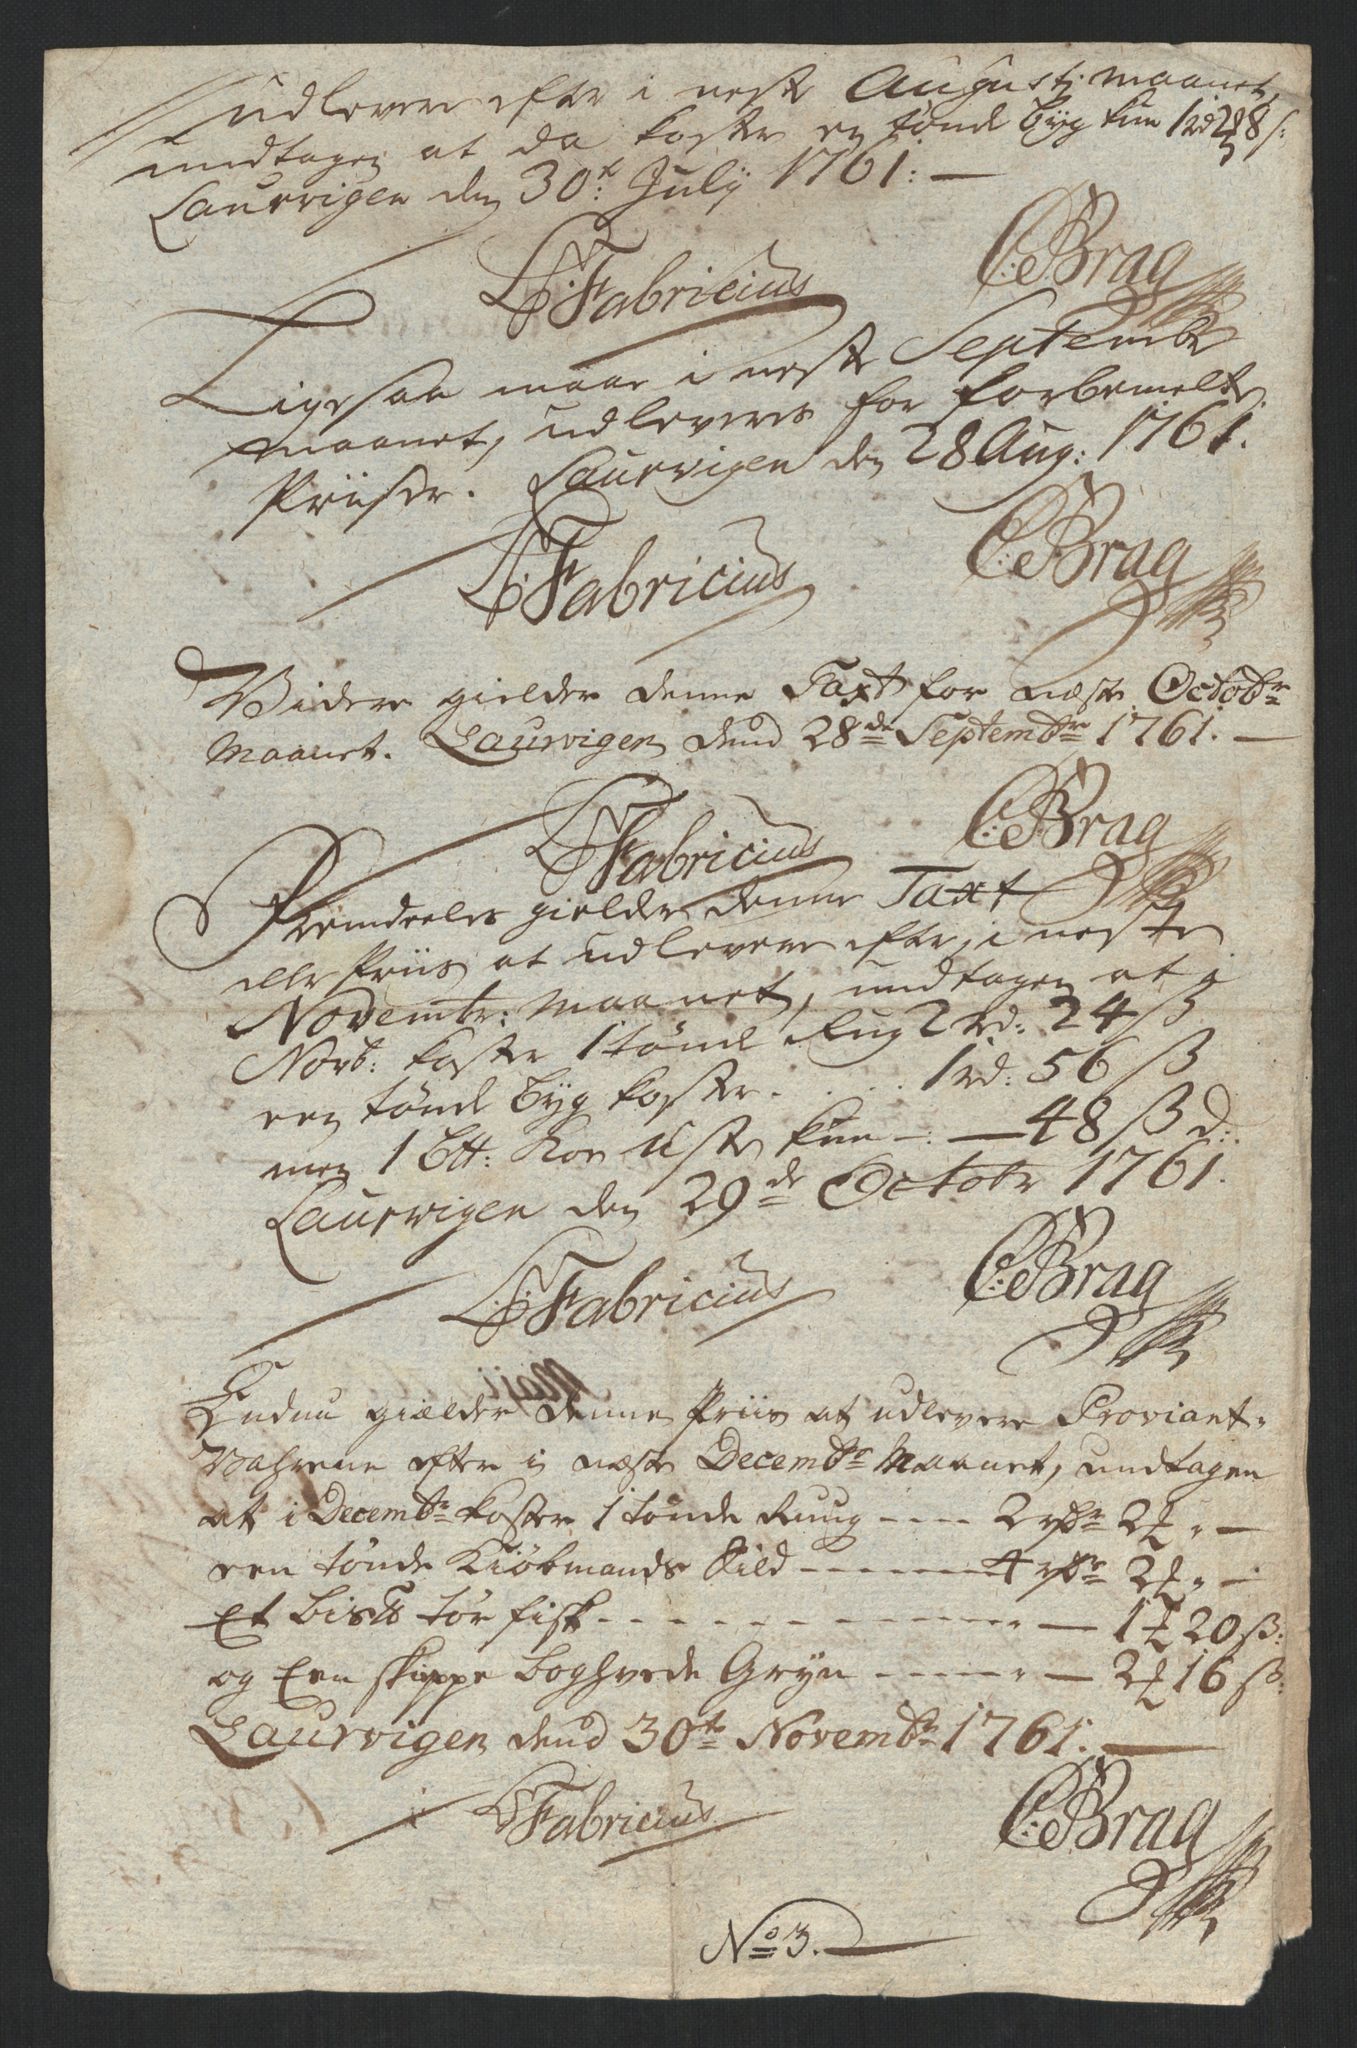 udlevere efter i neste Augusti maanet,
undtagen at da koster en tønde Byg kun 1 rd 2 ₰ 8 s:
Laurvigen den 30t: July 1761: —
Fabricius C: Brag
Ligesaa maae i neste Septembr
maanet, udleveres for forbemelte
Priiser. Laurvigen den 28 Aug: 1761.
Fabricius C: Brag
Videre gielder denne Taxt for næste Octobr
Maanet. Laurvigen dend 28de Septembr 1761. —
Fabricius C: Brag
Fremdeeles gielder denne Taxt
eller Priis at udlevere efter, i neste
Novembr: maanet, undtagen at i
Novb: koster 1 tønde Rug 2 rd: 24 ß
een tønde Byg koster . . . . 1 rd: 56 ß
men 1 Btt: Koe kun —: — 48 ß d:
Laurvigen den 29de Octobr 1761.
Fabricius C: Brag
Endnu gielder denne Priis at udlevere Proviant-
Vahrene efter i næste Decembr Maanet, undtagen
at i Decembr koster 1 tønde Ruug --- 2 rdr 2 ₰ " —
een tønde Kiøbmands Sild ------ 4 rdr 2 ₰ " —
Et bis℔ tør fisk - - - - - - — 1 ₰ 20 ß:
og Een skieppe Boghvede Gryn ------ — 2 ₰ 16 ß:
Laurvigen dend 30te Novembr 1761. —
Fabricius C: Brag
No 3. —